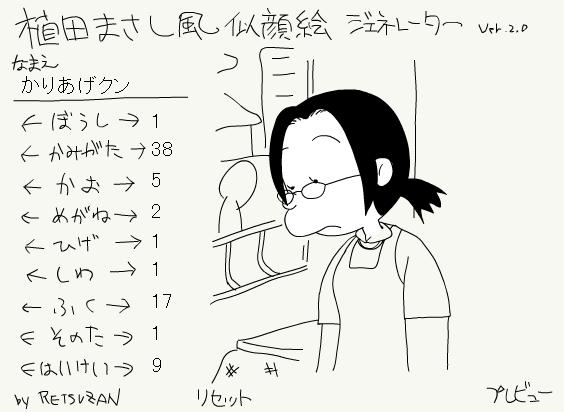 植田まさし風 似顔絵 ジェネレーター Ver.2.0
なまえ
かりあげクン
← ぼうし → 1
← かみがた → 38
← かお → 5
← めがね → 2
← ひげ → 1
← しわ → 1
← ふく → 17
← そのた → 1
← はいけい → 9
by RETSUZAN
リセット
プレビュー